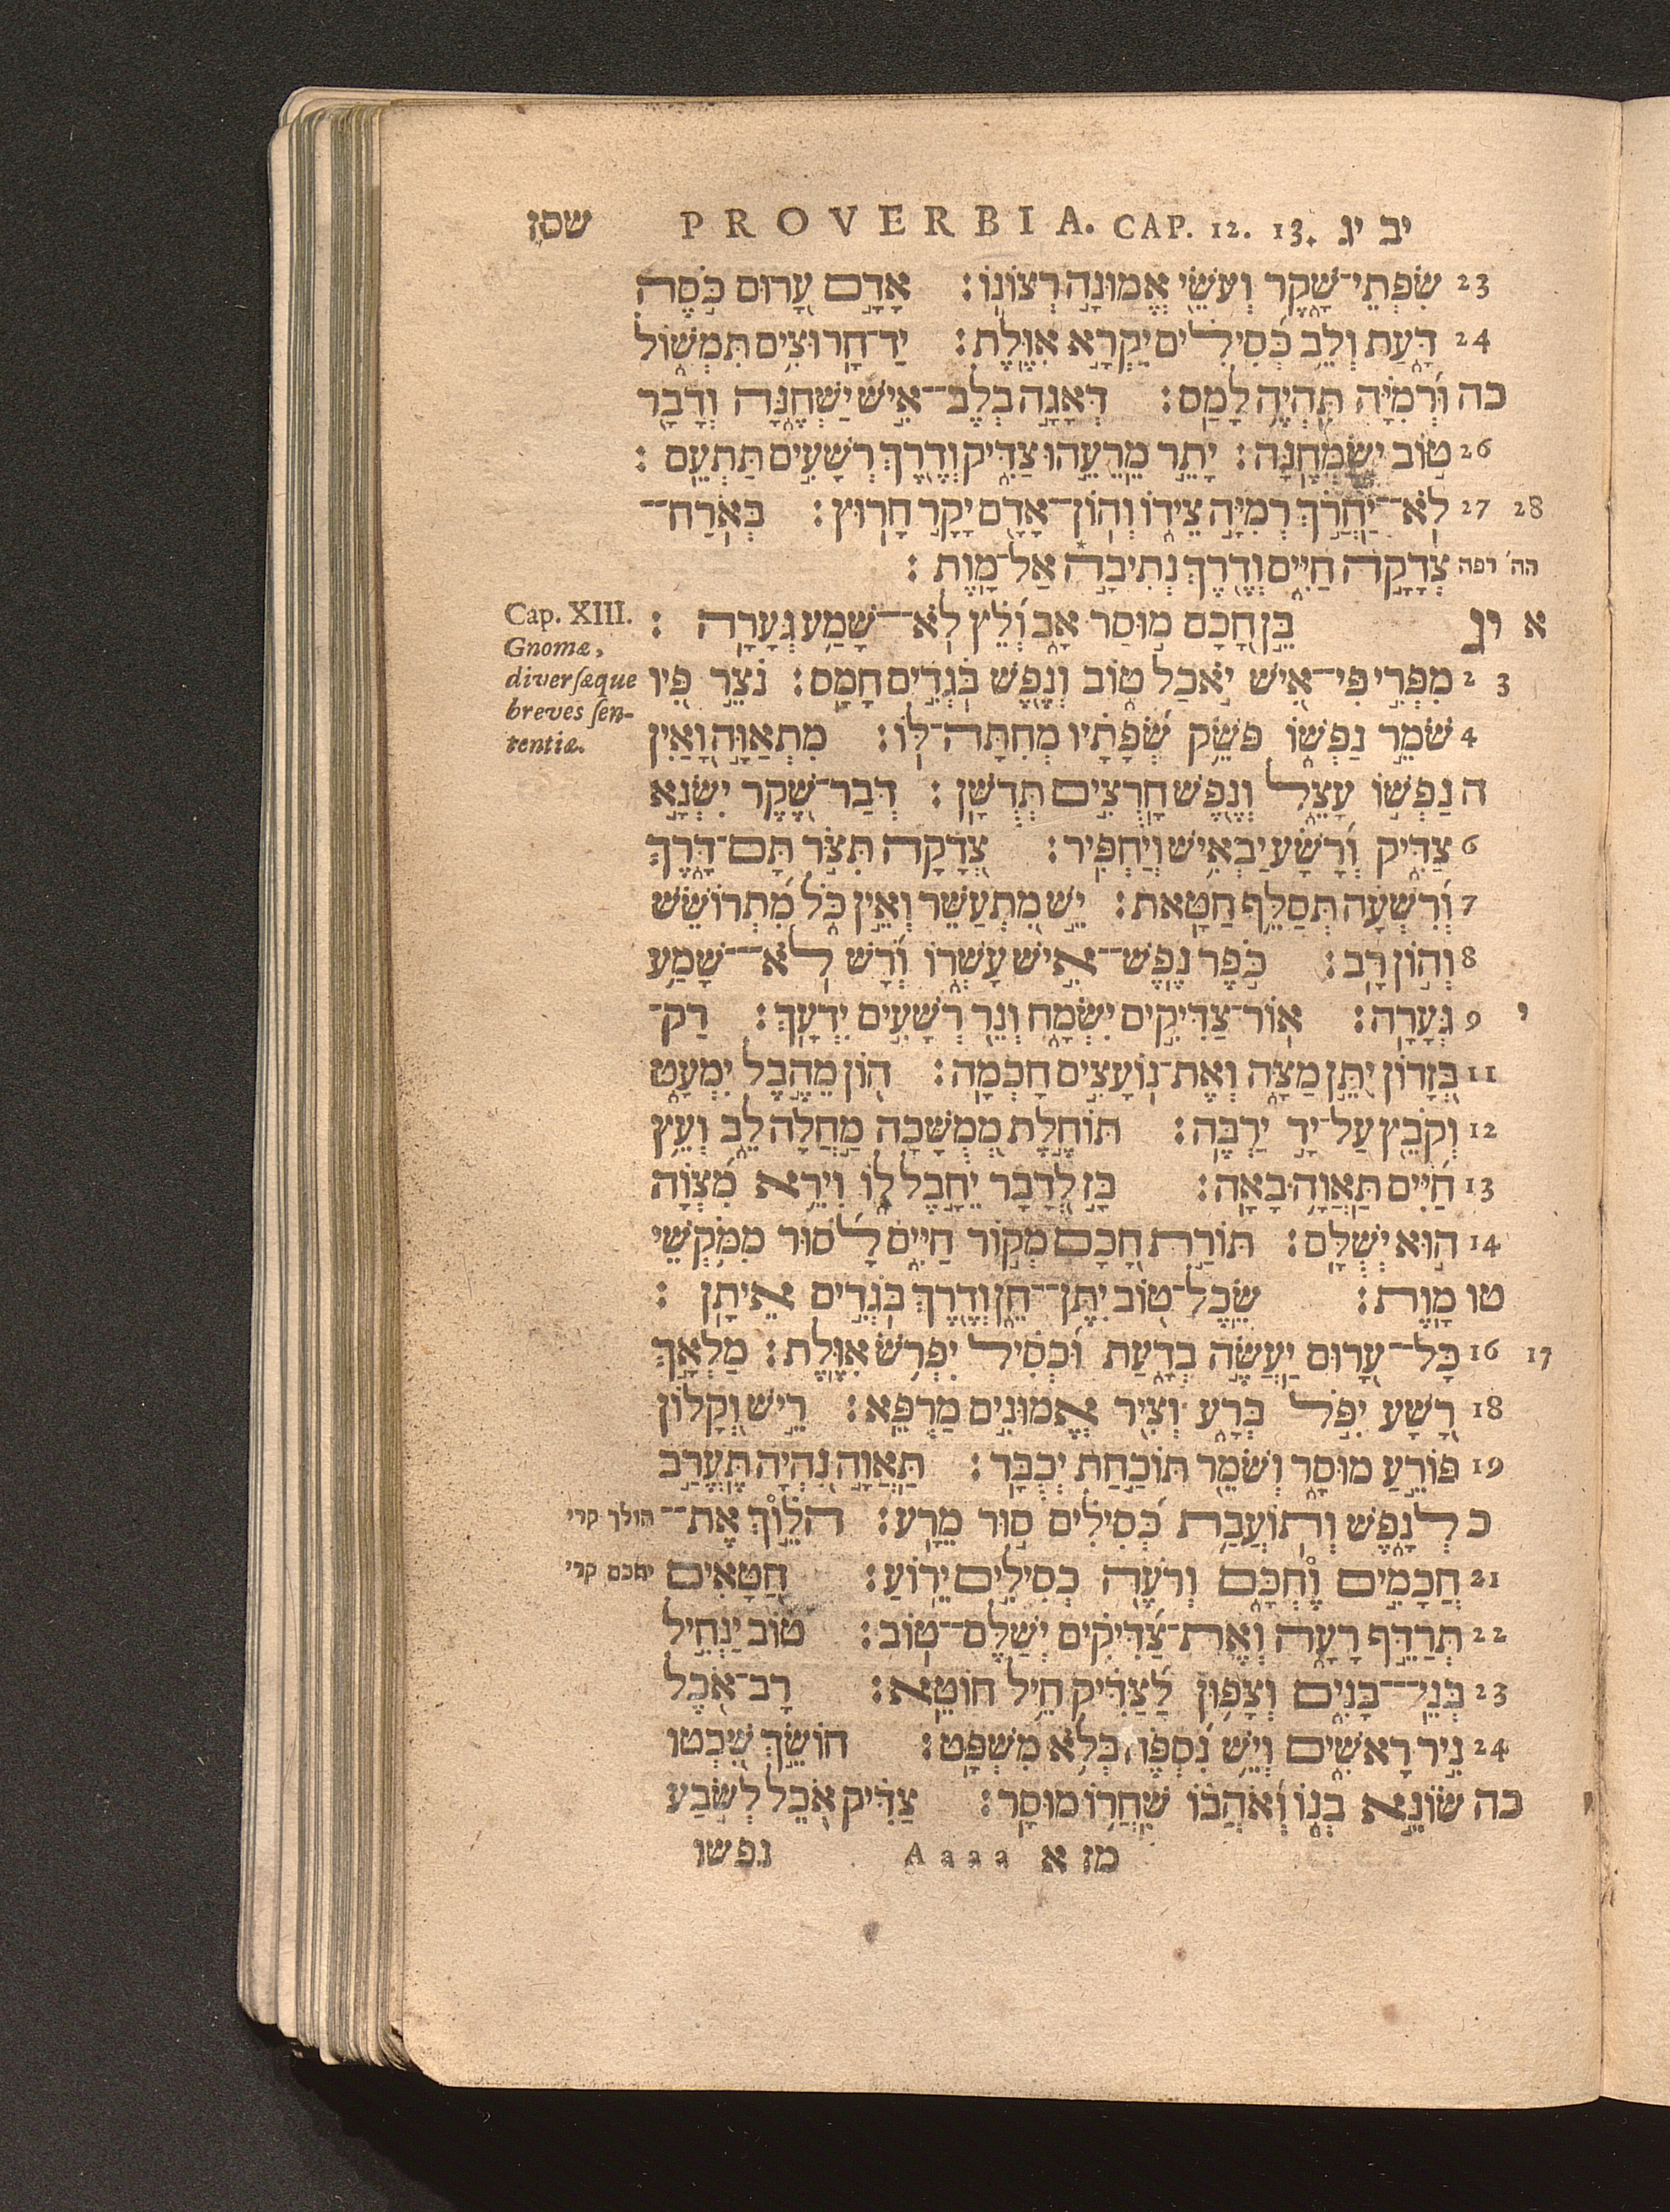 יב יג PROVERBIA. CAP. 12. 13. שסז
23 שִׂפְתֵי־שָׁקֶר וְעֹשֵׂי אֱמוּנָה רְצוֹנוֹ׃ אָדָם עָרוּם כֹּסֶה
24 דָּעַת וְלֵב כְּסִילִים יִקְרָא אִוֶּלֶת׃ יַד־חָרוּצִים תִּמְשׁוֹל
כה וּרְמִיָּה תִּהְיֶה לָמַס׃ דְּאָגָה בְלֶב־אִישׁ יַשְׁחֶנָּה וְדָבָר
26 טוֹב יְשַׂמְּחֶנָּה׃ יָתֵר מֵרֵעֵהוּ צַדִּיק וְדֶרֶךְ רְשָׁעִים תַּתְעֵם׃
27 28 לֹא־יַחֲרֹךְ רְמִיָּה צֵידוֹ וְהוֹן־אָדָם יָקָר חָרוּץ׃ בְּאֹרַח־
הה׳ רפה צְדָקָה חַיִּים וְדֶרֶךְ נְתִיבָה* אַל־מָוֶת׃
א יג בֵּן חָכָם מוּסַר אָב וְלֵץ לֹא־שָׁמַע גְּעָרָה׃
Cap. XIII.
Gnomæ,
diversæque
breves sen-
tentiæ.
2 3 מִפְּרִי פִי־אִישׁ יֹאכַל טוֹב וְנֶפֶשׁ בֹּגְדִים חָמָס׃ נֹצֵר פִּיו
4 שֹׁמֵר נַפְשׁוֹ פֹּשֵׂק שְׂפָתָיו מְחִתָּה־לוֹ׃ מִתְאַוָּה וָאַיִן
ה נַפְשׁוֹ עָצֵל וְנֶפֶשׁ חָרֻצִים תְּדֻשָּׁן׃ דְּבַר־שֶׁקֶר יִשְׂנָא
6 צַדִּיק וְרָשָׁע יַבְאִישׁ וְיַחְפִּיר׃ צְדָקָה תִּצֹּר תָּם־דָּרֶךְ
7 וְרִשְׁעָה תְּסַלֵּף חַטָּאת׃ יֵשׁ מִתְעַשֵּׁר וְאֵין כֹּל מִתְרוֹשֵׁשׁ
8 וְהוֹן רָב׃ כֹּפֶר נֶפֶשׁ־אִישׁ עָשְׁרוֹ וְרָשׁ לֹא־שָׁמַע
9 י גְּעָרָה׃ אוֹר־צַדִּיקִים יִשְׂמָח וְנֵר רְשָׁעִים יִדְעָךְ׃ רַק־
11 בְּזָדוֹן יִתֵּן מַצָּה וְאֶת־נוֹעָצִים חָכְמָה׃ הוֹן מֵהֶבֶל יִמְעָט
12 וְקֹבֵץ עַל־יָד יַרְבֶּה׃ תּוֹחֶלֶת מְמֻשָּׁכָה מַחֲלָה לֵב וְעֵץ
13 חַיִּים תַּאֲוָה בָאָה׃ בָּז לְדָבָר יֵחָבֶל לוֹ וִירֵא מִצְוָה
14 הוּא יְשֻׁלָּם׃ תּוֹרַת חָכָם מְקוֹר חַיִּים לָסוּר מִמֹּקְשֵׁי
טו מָוֶת׃ שֵׂכֶל־טוֹב יִתֶּן־חֵן וְדֶרֶךְ בֹּגְדִים אֵיתָן׃
16 17 כָּל־עָרוּם יַעֲשֶׂה בְדָעַת וּכְסִיל יִפְרֹשׂ אִוֶּלֶת׃ מַלְאָךְ
18 רָשָׁע יִפֹּל בְּרָע וְצִיר אֱמוּנִים מַרְפֵּא׃ רֵישׁ וְקָלוֹן
19 פּוֹרֵעַ מוּסָר וְשֹׁמֵר תּוֹכַחַת יְכֻבָּד׃ תַּאֲוָה נִהְיָה תֶּעֱרַב
כ לְנָפֶשׁ וְתוֹעֲבַת כְּסִילִים סוּר מֵרָע׃ הלוֹךְ אֶת־ הולך קרי
21 חֲכָמִים וחכם וְרֹעֶה כְסִילִים יֵרוֹעַ׃ חַטָּאִים יחכם קרי
22 תְּרַדֵּף רָעָה וְאֶת־צַדִּיקִים יְשַׁלֶּם־טוֹב׃ טוֹב יַנְחִיל
23 בְּנֵי־בָנִים וְצָפוּן לַצַּדִּיק חֵיל חוֹטֵא׃ רָב־אֹכֶל
24 נִיר רָאשִׁים וְיֵשׁ נִסְפֶּה בְּלֹא מִשְׁפָּט׃ חוֹשֵׂךְ שִׁבְטוֹ
כה שׂוֹנֵא בְנוֹ וְאֹהֲבוֹ שִׁחֲרוֹ מוּסָר׃ צַדִּיק אֹכֵל לְשֹׂבַע
מז א Aaaa נפשו